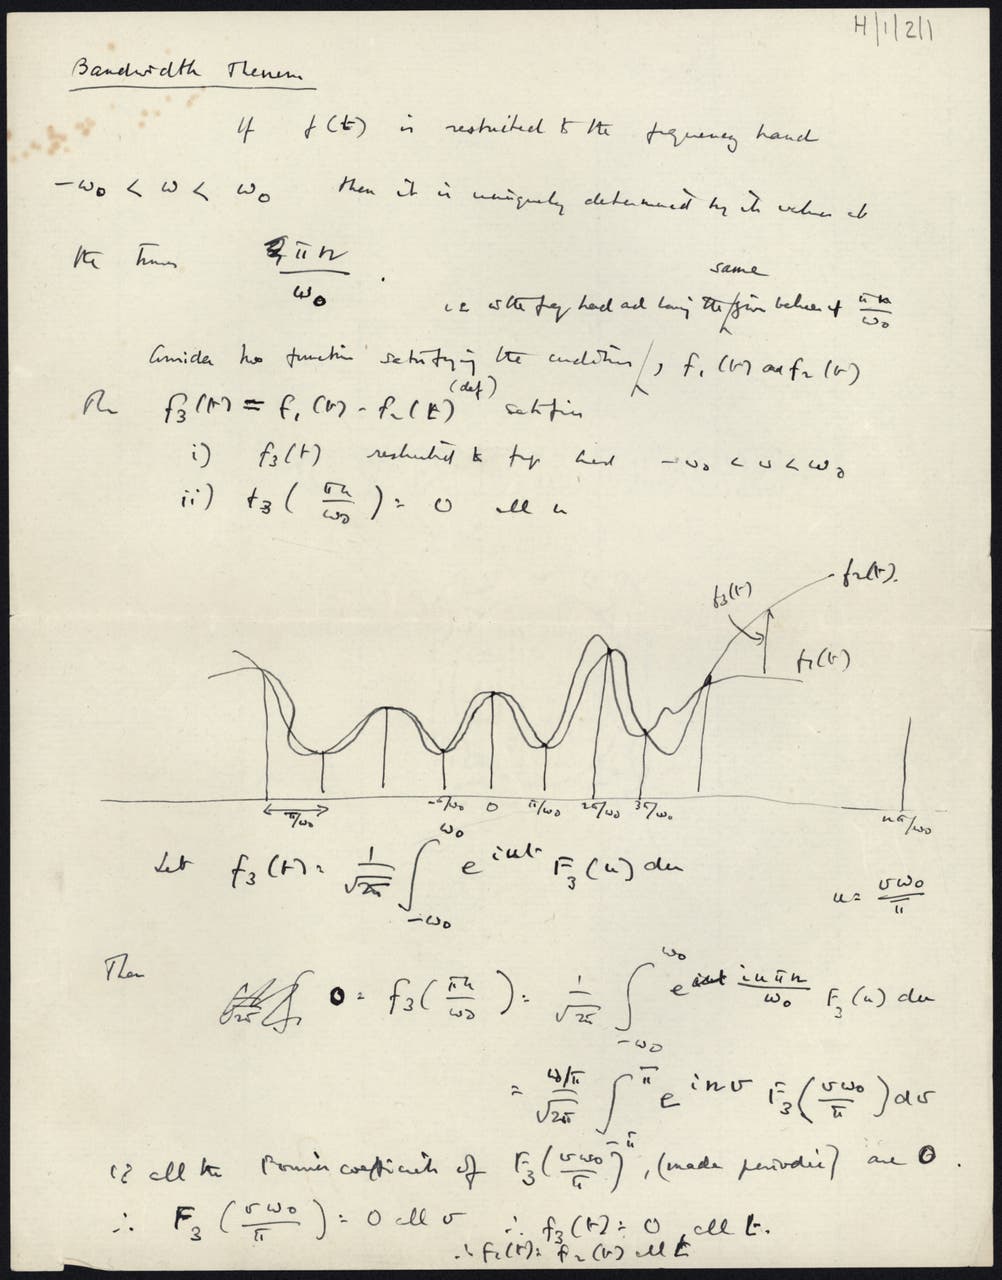 H/1/2/1
Bandwidth Theorem
If f(t) is restricted to the frequency band
-ω₀ < ω < ω₀ then it is uniquely determined by its values at
the times πn/ω₀ .
same
i.e. with freq band and having the given values at πn/ω₀
Consider two functions satisfying the conditions, f₁(t) and f₂(t)
(def)
Then f₃(t) = f₁(t) - f₂(t) satisfies
i) f₃(t) restricted to freq band -ω₀ < ω < ω₀
ii) f₃(πn/ω₀) = 0 all n
f₂(t).
f₃(t)
f₁(t)
π/ω₀ -π/ω₀ 0 π/ω₀ 2π/ω₀ 3π/ω₀ nπ/ω₀
Let f₃(t) = 1/√2π ∫_{-ω₀}^{ω₀} e^{iut} F₃(u) du
u = vω₀/π
Then 0 = f₃(πn/ω₀) = 1/√2π ∫_{-ω₀}^{ω₀} e^{iuπn/ω₀} F₃(u) du
= ω/π/√2π ∫_{-π}^{π} e^{inv} F₃(vω₀/π) dv
i.e. all the Fourier coefficients of F₃(vω₀/π), (made periodic) are 0.
∴ F₃(vω₀/π) = 0 all v ∴ f₃(t) = 0 all t.
∴ f₁(t) = f₂(t) all t